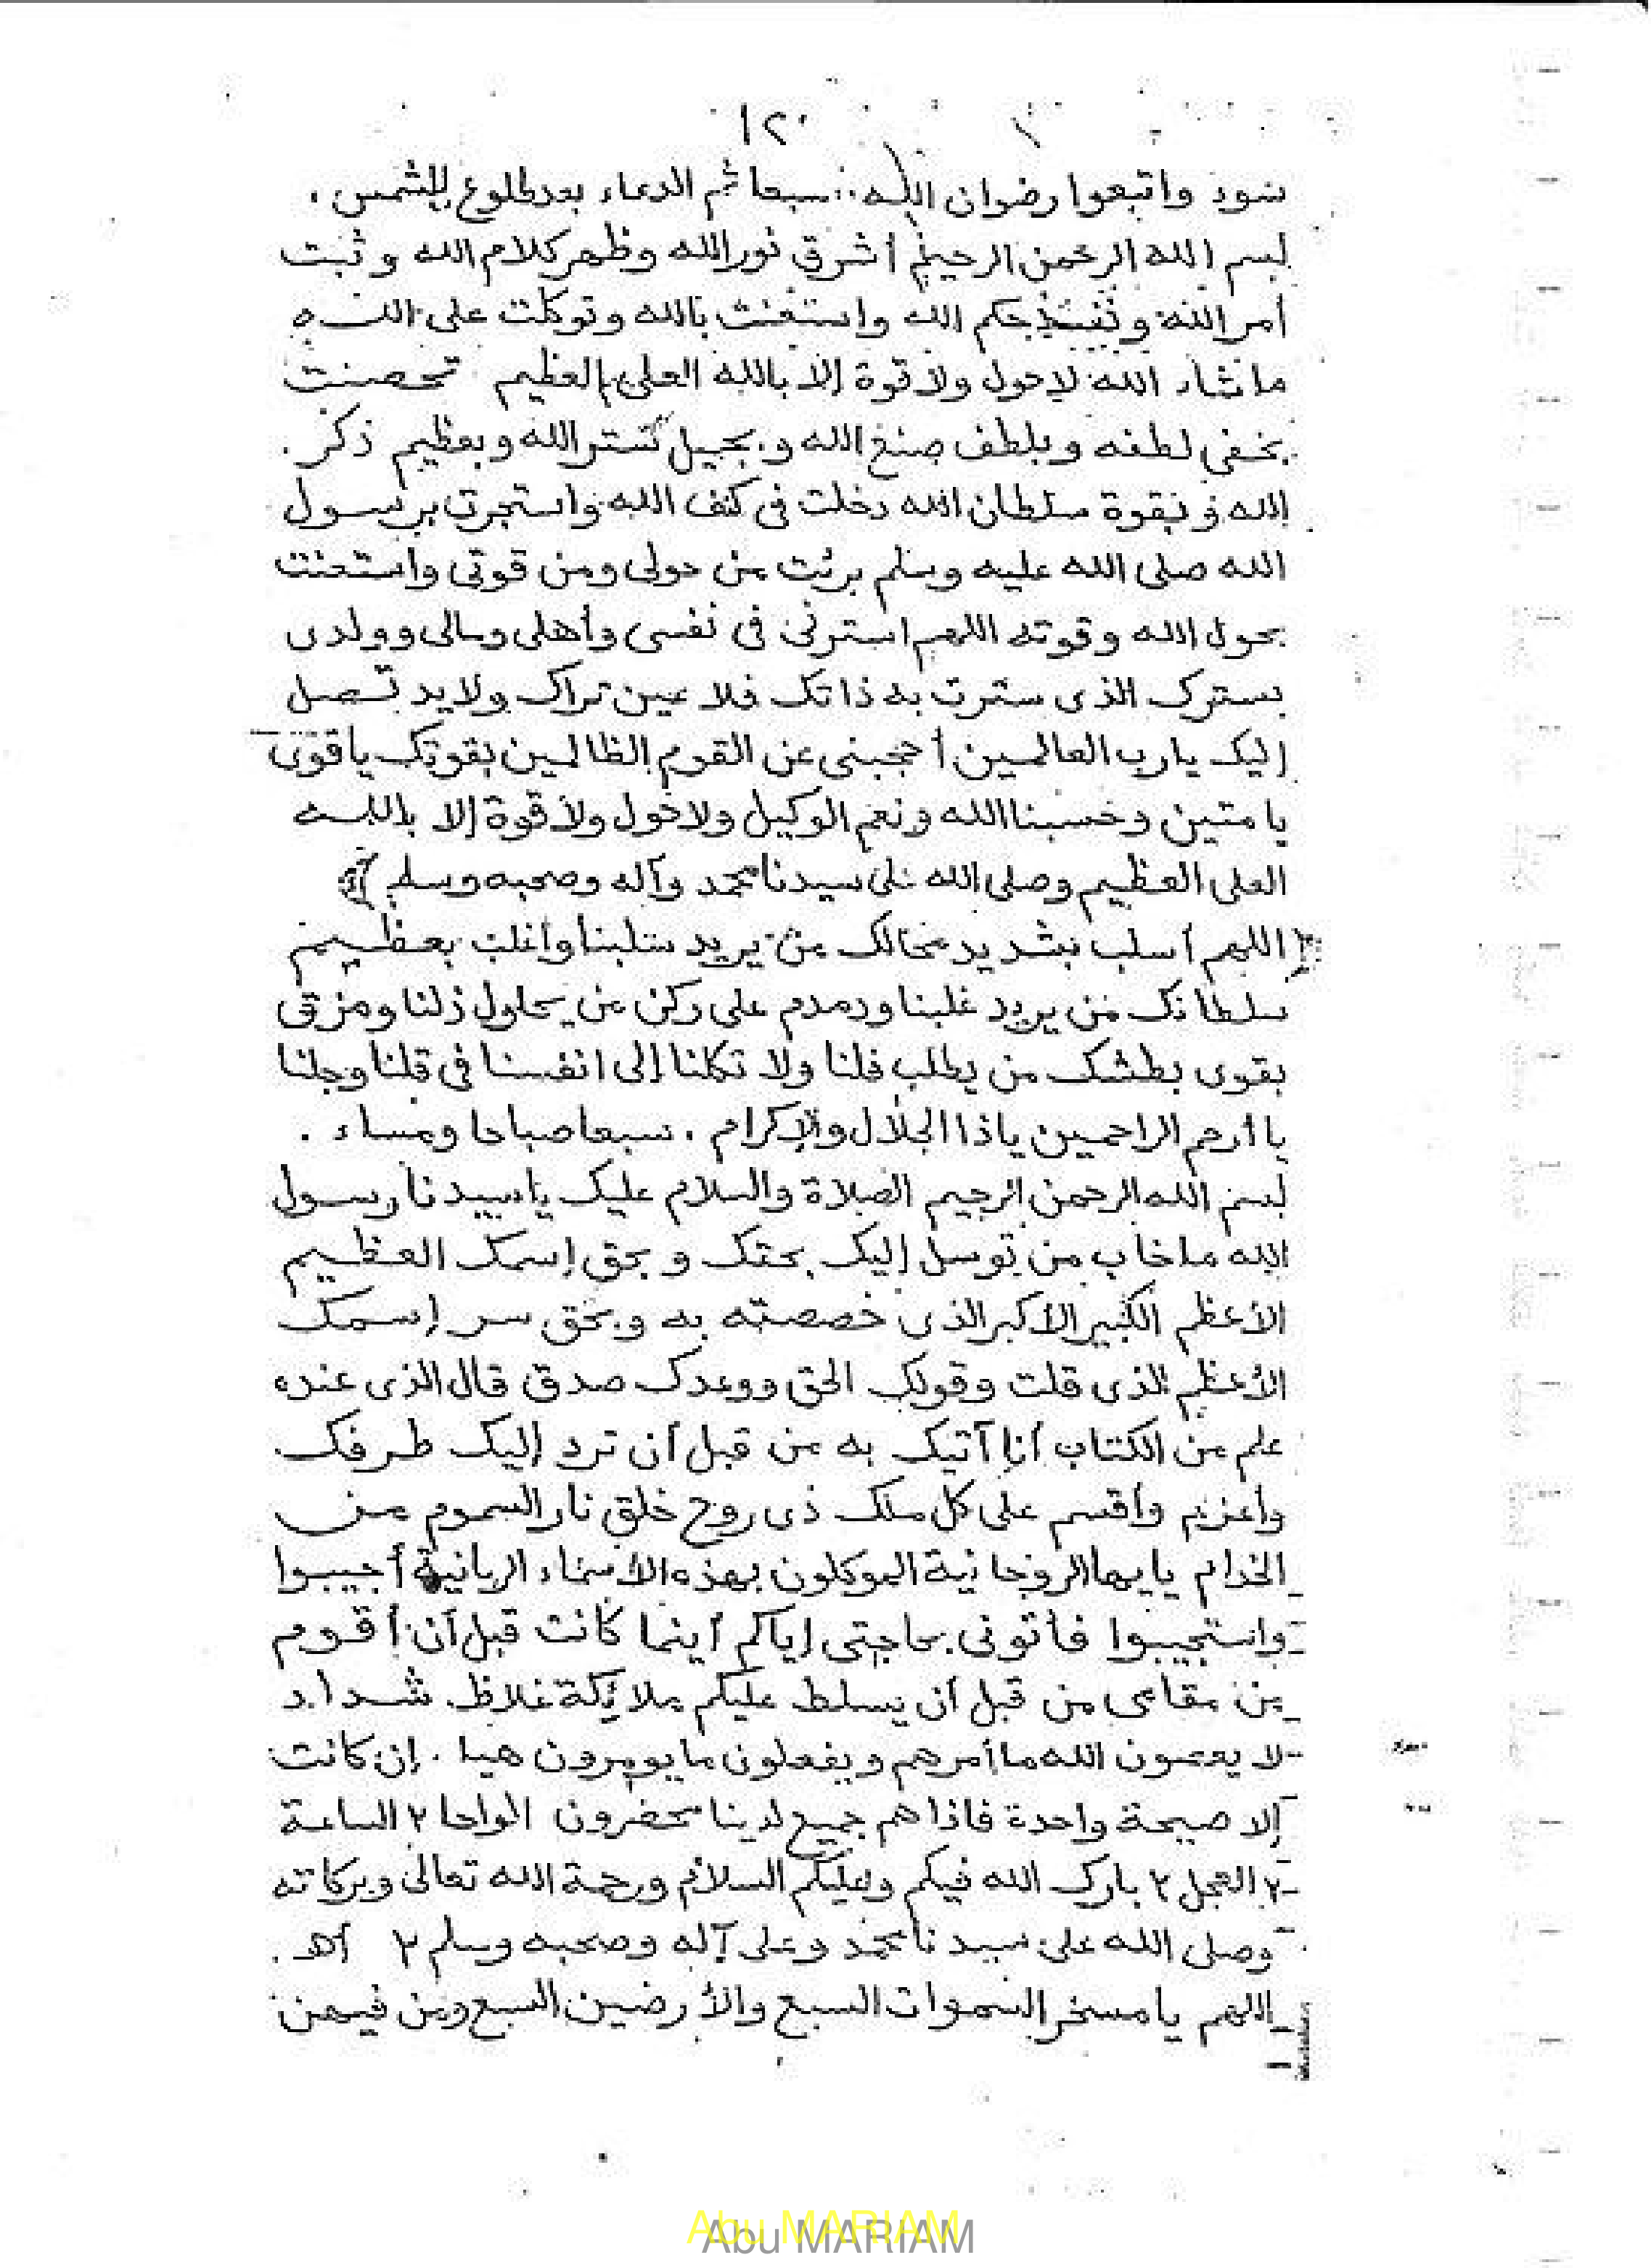 ١٢٠
سوء واتبعوا رضوان الله .. سبعا ثم الدعاء بعد طلوع الشمس .
بسم الله الرحمن الرحيم أشرق نور الله وظهر كلام الله وثبت
أمر الله ونفذ حكم الله واستعنت بالله وتوكلت على الله
ما شاء الله لاحول ولا قوة إلا بالله العلى العظيم تحصنت
بخفى لطفه وبلطف صنع الله وبجميل ستر الله وبعظيم ذكر
الله وبقوة سلطان الله دخلت فى كنف الله واستجرت برسول
الله صلى الله عليه وسلم برئت من حولى ومن قوتى واستعنت
بحول الله وقوته اللهم استرنى فى نفسى وأهلى ومالى وولدى
بسترك الذى سترت به ذاتك فلا عين تراك ولا يد تصل
إليك يارب العالمين أحجبنى عن القوم الظالمين بقوتك ياقوى
يا متين وحسبنا الله ونعم الوكيل ولاحول ولا قوة إلا بالله
العلى العظيم وصلى الله على سيدنا محمد وآله وصحبه وسلم
اللهم أسلب بشديد محالك من يريد سلبنا واغلب بعظيم
سلطانك من يريد غلبنا ودمدم على ركن من يحاول ذلنا ومزق
بقوى بطشك من يطلب فلنا ولا تكلنا إلى انفسنا فى قلنا وجلنا
يا أرحم الراحمين ياذا الجلال والإكرام . سبعا صباحا ومساء .
بسم الله الرحمن الرحيم الصلاة والسلام عليك يا سيدنا رسول
الله ما خاب من توسل إليك بحقك وبحق إسمك العظيم
الأعظم الكبير الأكبر الذى خصصته به وبحق سر إسمك
الأعظم الذى قلت وقولك الحق ووعدك صدق قال الذى عنده
علم من الكتاب أنا آتيك به من قبل أن ترد إليك طرفك
وأعزم وأقسم على كل ملك ذى روح خلق نار السموم من
الخدام يايها الروحانية الموكلون بهذه الأسماء الربانية أجيبوا
واستجيبوا فأتونى بحاجتى إياكم أينما كانت قبل أن أقوم
من مقامى من قبل أن يسلط عليكم ملائكة غلاظ شداد
لا يعصون الله ما أمرهم ويفعلون ما يومرون هيا . إن كانت
إلا صيحة واحدة فاذا هم جميع لدينا محضرون الواحا ٢ الساعة
٢ العجل ٢ بارك الله فيكم وعليكم السلام ورحمة الله تعالى وبركاته
وصلى الله على سيدنا محمد وعلى آله وصحبه وسلم ٢ أهـ .
اللهم يا مسخر السموات السبع والأرضين السبع ومن فيهن
Abu MARIAM
Abu MARIAM